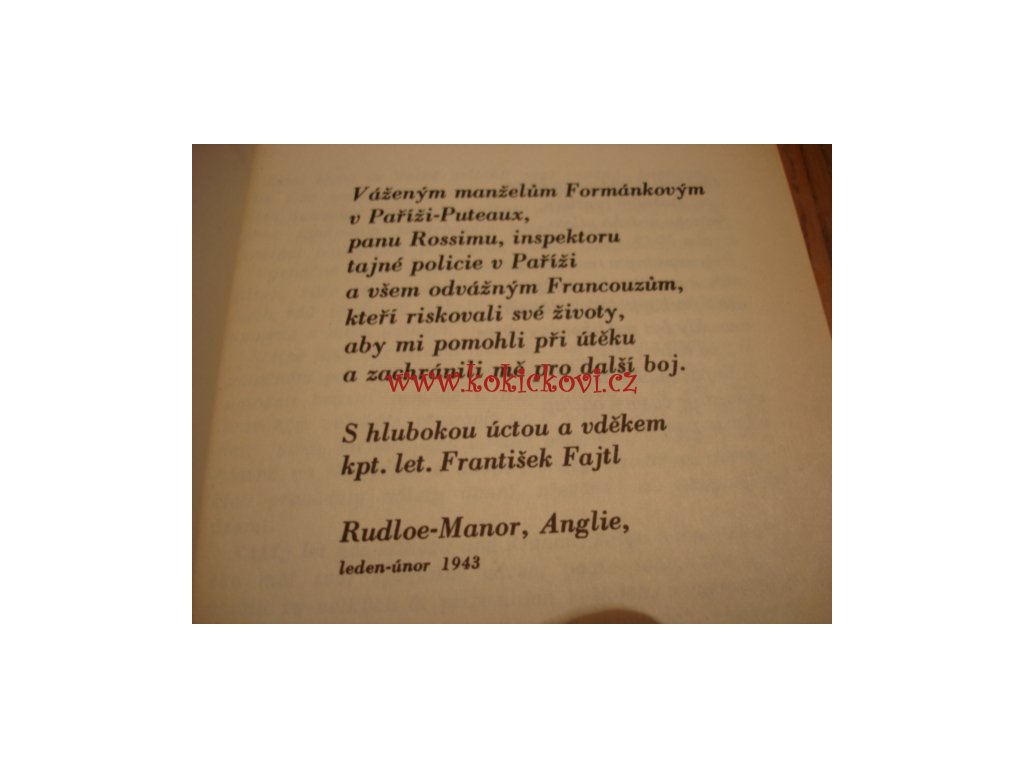 Váženým manželům Formánkovým
v Paříži-Puteaux,
panu Rossimu, inspektoru
tajné policie v Paříži
a všem odvážným Francouzům,
kteří riskovali své životy,
aby mi pomohli při útěku
a zachránili mě pro další boj.
www.kokickovi.cz
S hlubokou úctou a vděkem
kpt. let. František Fajtl
Rudloe-Manor, Anglie,
leden-únor 1943